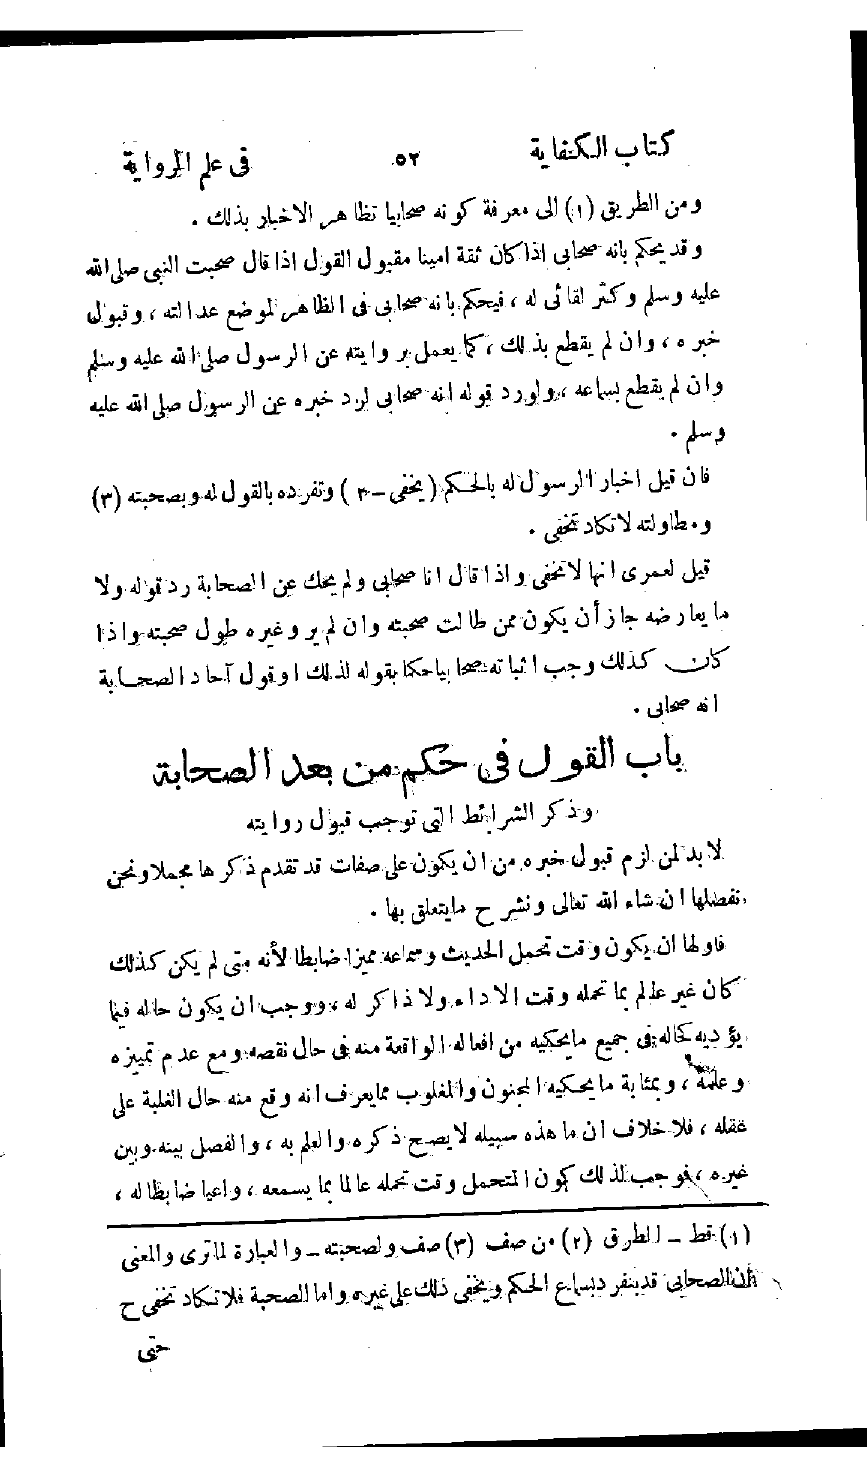 كتاب الكفاية ٥٢ فى علم الرواية
ومن الطريق (١) الى معرفة كونه صحابيا تظاهر الاخبار بذلك .
وقد يحكم بانه صحابى اذا كان ثقة امينا مقبول القول اذا قال صحبت النبى صلى الله
عليه وسلم وكثر لقائى له ، فيحكم بانه صحابى فى الظاهر لموضع عدالته ، وقبول
خبره ، وان لم يقطع بذلك ، كما يعمل بروايته عن الرسول صلى الله عليه وسلم
وان لم يقطع بسماعه ، ولورد قوله انه صحابى لرد خبره عن الرسول صلى الله عليه
وسلم .
فان قيل اخبار الرسول له بالحكم ( يخفى -٢ ) وتفرده بالقول له وبصحبته (٣)
ومطاولته لا تكاد تخفى .
قيل لعمرى انها لا تخفى واذا قال انا صحابى ولم يحك عن الصحابة رد قوله ولا
ما يعارضه جاز أن يكون ممن طالت صحبته وان لم يرو غيره طول صحبته واذا
كان كذلك وجب اثباته صحابيا حكما بقوله لذلك او قول آحاد الصحابة
انه صحابى .
باب القول فى حكم من بعد الصحابة
وذكر الشرائط التى توجب قبول روايته
لا بد لمن لزم قبول خبره من ان يكون على صفات قد تقدم ذكرها مجملا ونحن
نفصلها ان شاء الله تعالى ونشرح ما يتعلق بها .
فاولها ان يكون وقت تحمل الحديث وسماعه مميزا ضابطا لأنه متى لم يكن كذلك
كان غير عالم بما تحمله وقت الاداء ولا ذاكر له ، ووجب ان يكون حاله فيما
يؤديه كحاله فى جميع ما يحكيه من افعاله الواقعة منه فى حال نقصه ومع عدم تمييزه
وعلمه ، وبمثابة ما يحكيه المجنون والمغلوب مما يعرف انه وقع منه حال الغلبة على
عقله ، فلا خلاف ان ما هذه سبيله لا يصح ذكره والعلم به ، والفصل بينه وبين
غيره ، فوجب لذلك كون المتحمل وقت تحمله عالما بما يسمعه ، واعيا ضابطا له ،
(١) قط ـ الطرق (٢) من صف (٣) صف ولصحبته ـ والعبارة لما ترى والمعنى
أن الصحابى قد ينفرد بسماع الحكم ويخفى ذلك على غيره واما الصحبة فلا تكاد تخفى ح
حتى